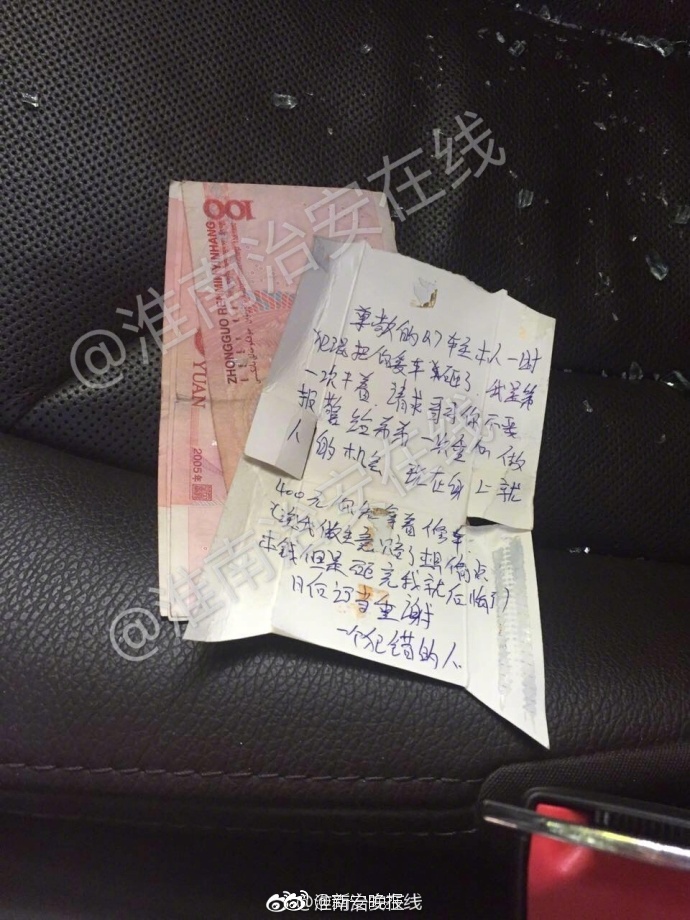 @淮南治安在线
100
ZHONGGUO RENMIN YINHANG
YUAN
2005年
尊敬的G7车主本人一时
犯混把你爱车砸了.我是第
一次干着.请求哥哥你不要
报警给弟弟一次重新做
人的机会 现在身上就
400元你先拿着修车.
本钱但是砸完我就后悔了)
日后定当重谢
一个犯错的人.
@淮南治安在线